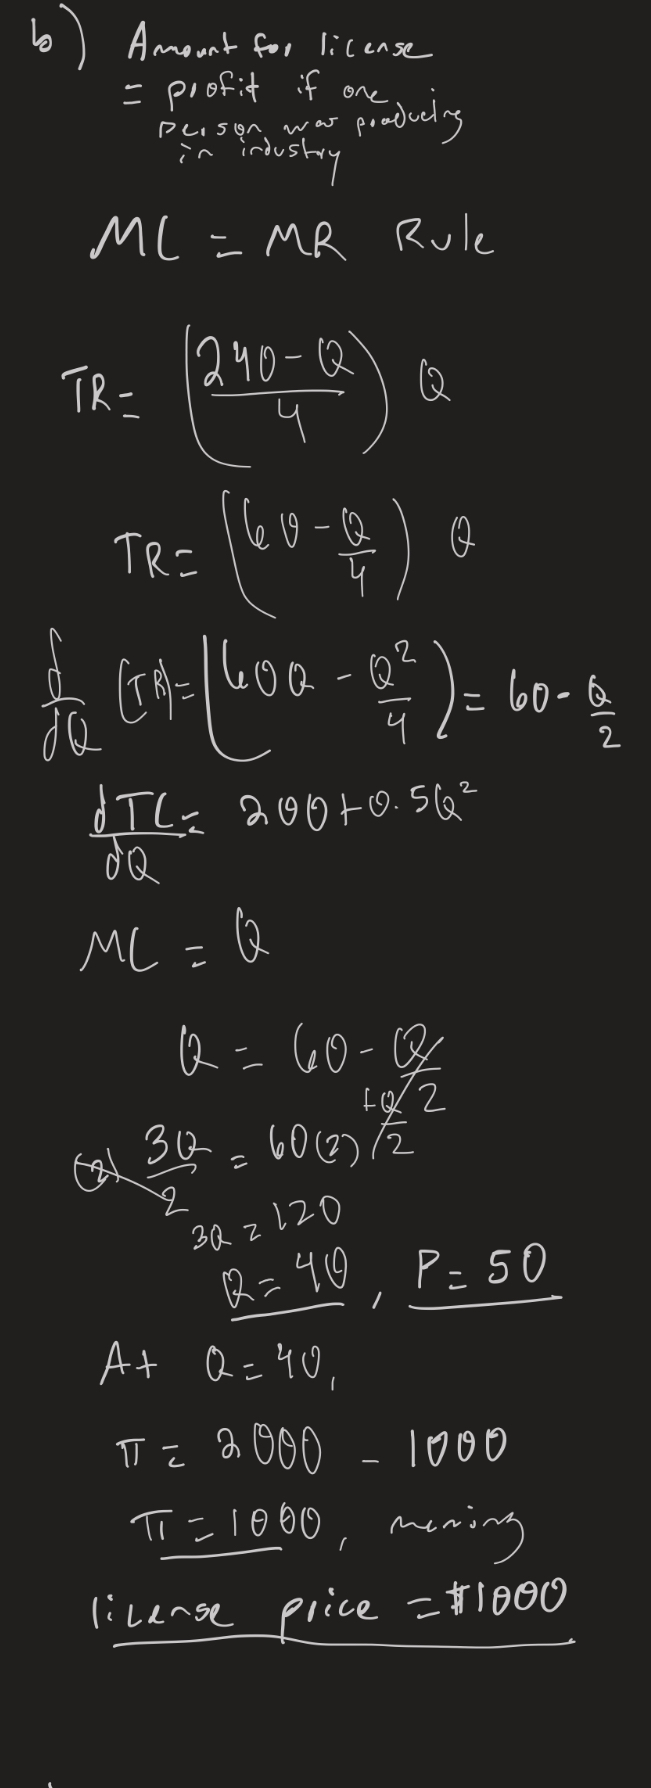 b) Amount for license
= profit if one
person was producing
in industry
MC = MR Rule
TR = (240 - Q / 4) Q
TR = (60 - Q/4) Q
d/dQ (TR) = (60Q - Q²/4) = 60 - Q/2
dTC/dQ = 200 + 0.5Q²
MC = Q
Q = 60 - Q/2
+Q/2
(2) 3Q/2 = 60(2)
3Q = 120
Q = 40, P = 50
At Q = 40,
π = 2000 - 1000
π = 1000, mening
license price = $1000